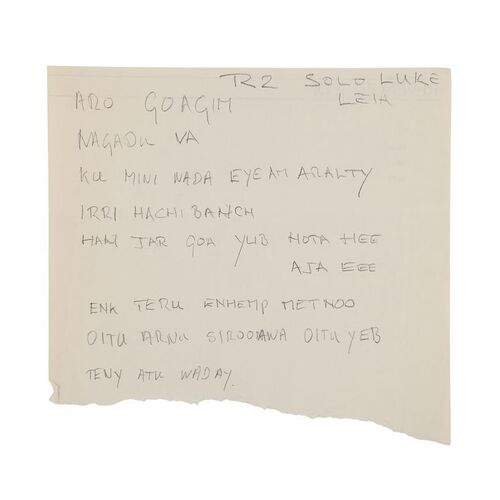 TR2 SOLO LUKE
LEIA
ARO GOAGIM
NAGADU VA
KU MINI WADA EYEAM ARALTY
IRRI HACHI BANCH
HAN JAR GOA YUB HOTA HEE
AJA EEE
ENK TERU ENHEMP METNOO
OITU ARNU SIROOAWA OITU YEB
TENY ATU WADAY.